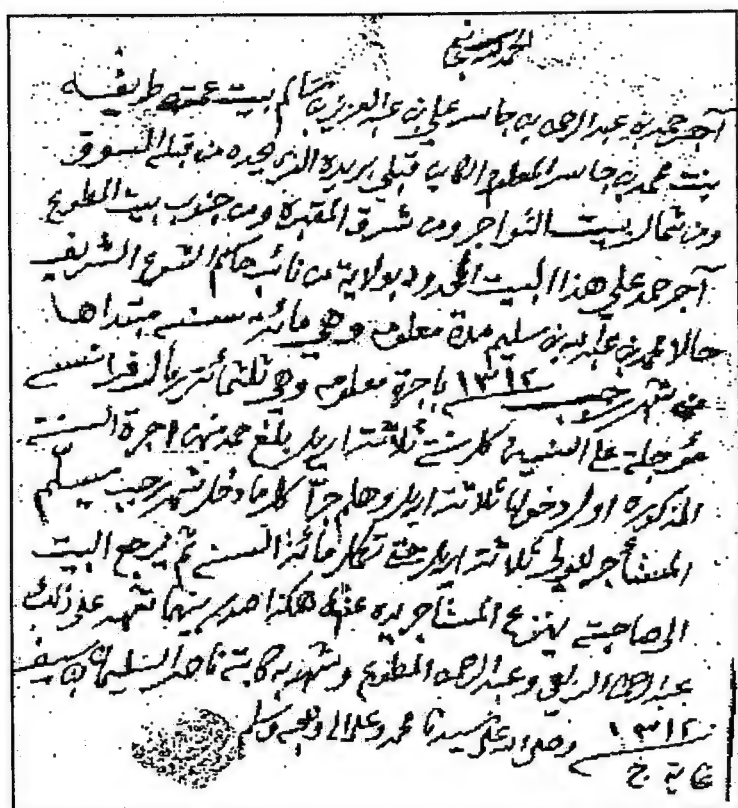 الحمد لله سبحانه
آجر حمد بن عبد الرحمن بن جاسر علي بن عبد العزيز بن سالم بيت عمته طريفه
بنت محمد بن جاسر المعلوم الكاين قبلي بريدة الذي يحده من قبله السوق
ومن شمال بيت التواجر ومن شرق المقبرة ومن جنوب بيت المطوع
آجر حمد علي هذا البيت المحدود بولاية من نائب حاكم الشرع الشريف
حالا محمد بن عبد الله بن سليم مدة معلومه وهي مائة سنه مبتداها
من شهر رجب ١٣١٢ باجرة معلومه وهي ثلثمائة ريال فرانسه
مؤجلة على السنين كل سنة ثلاثة اريل بلغ حمد منهن اجرة السنة
المذكوره اول دخولها ثلاثة اريل وهلم جرّا كل ما دخل شهر رجب يسلّم
المستأجر للولي ثلاثة اريل حتى تكمل مائة السنه ثم يرجع البيت
الى صاحبته ينزع المستأجر يده عنه هكذا صدر بينهما شهد على ذلك
عبد الرحمن الربعي وعبد الرحمن المطوع وشهد به كاتبه ناصر السليمان بن سيف
١٣١٢ وصلى الله على سيدنا محمد وعلى اله وصحبه وسلم